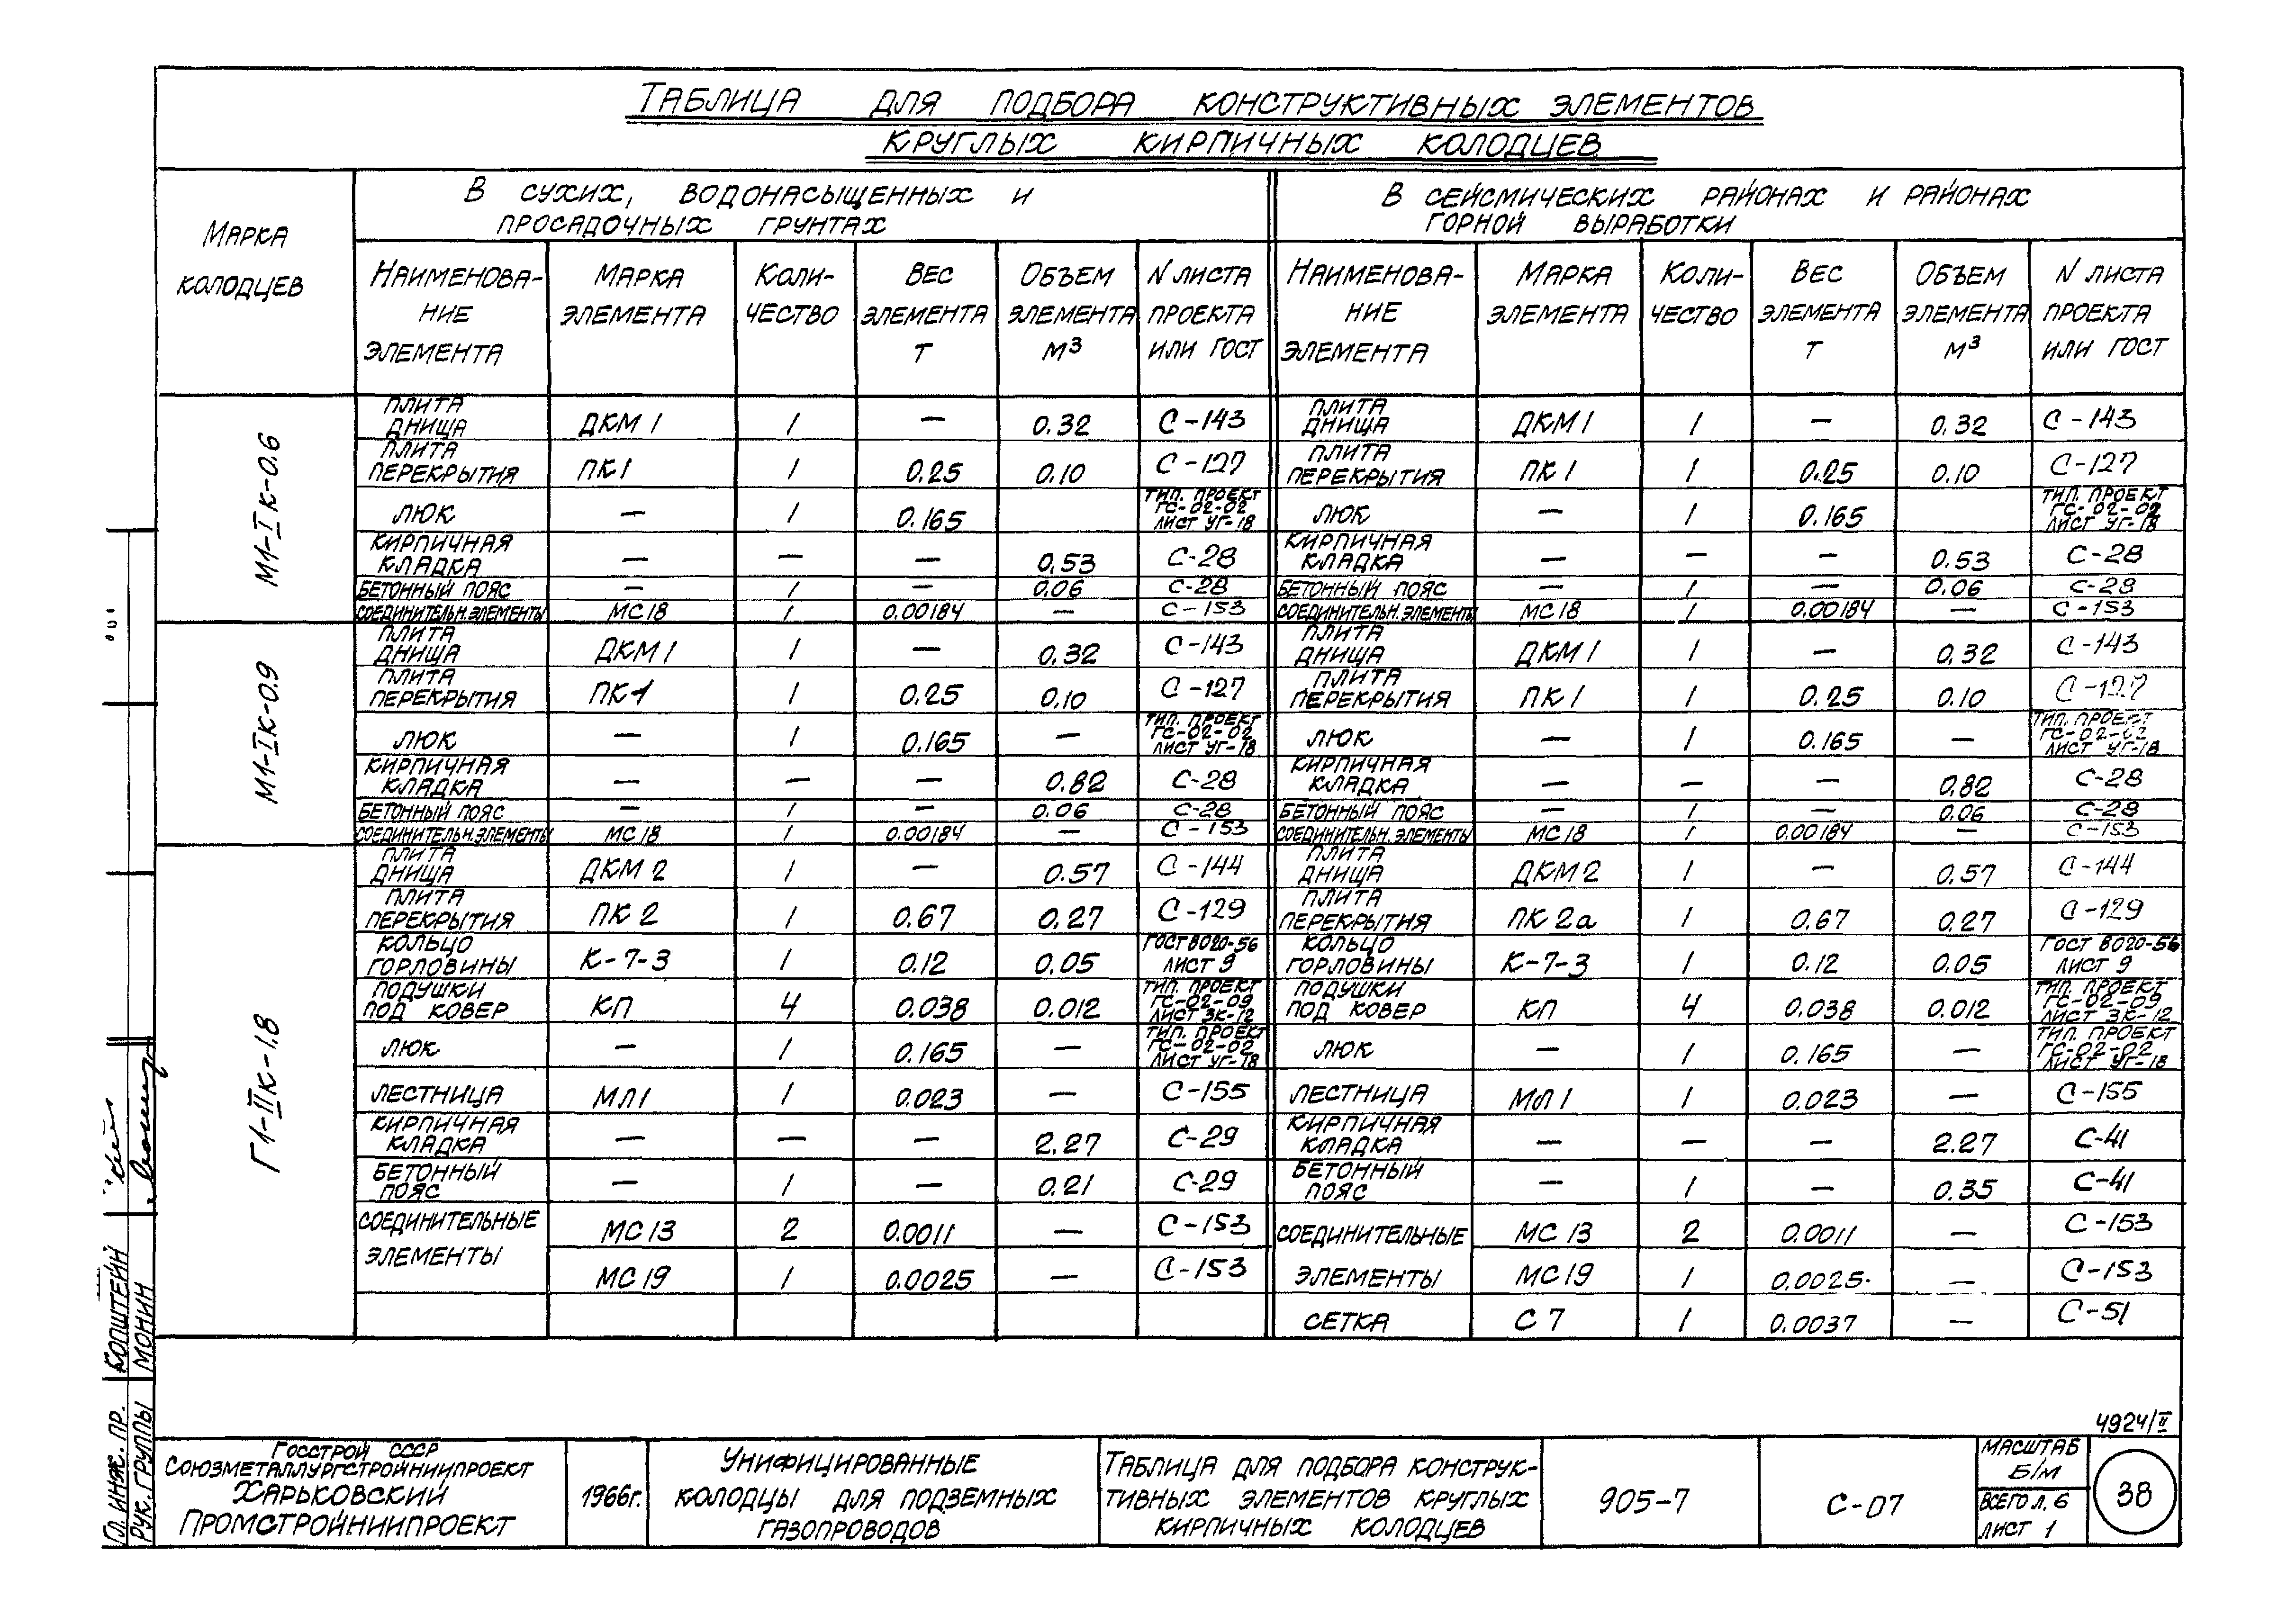 ТАБЛИЦА ДЛЯ ПОДБОРА КОНСТРУКТИВНЫХ ЭЛЕМЕНТОВ
КРУГЛЫХ КИРПИЧНЫХ КОЛОДЦЕВ
МАРКА КОЛОДЦЕВ
В СУХИХ, ВОДОНАСЫЩЕННЫХ И ПРОСАДОЧНЫХ ГРУНТАХ
В СЕЙСМИЧЕСКИХ РАЙОНАХ И РАЙОНАХ ГОРНОЙ ВЫРАБОТКИ
НАИМЕНОВА- НИЕ ЭЛЕМЕНТА МАРКА ЭЛЕМЕНТА КОЛИ- ЧЕСТВО ВЕС ЭЛЕМЕНТА Т ОБЪЕМ ЭЛЕМЕНТА М³ N ЛИСТА ПРОЕКТА ИЛИ ГОСТ НАИМЕНОВА- НИЕ ЭЛЕМЕНТА МАРКА ЭЛЕМЕНТА КОЛИ- ЧЕСТВО ВЕС ЭЛЕМЕНТА Т ОБЪЕМ ЭЛЕМЕНТА М³ N ЛИСТА ПРОЕКТА ИЛИ ГОСТ
М1-IК-0.6
ПЛИТА ДНИЩА ДКМ1 1 — 0.32 С-143 ПЛИТА ДНИЩА ДКМ1 1 — 0.32 С-143
ПЛИТА ПЕРЕКРЫТИЯ ПК1 1 0.25 0.10 С-127 ПЛИТА ПЕРЕКРЫТИЯ ПК1 1 0.25 0.10 С-127
ЛЮК — 1 0.165 ТИП. ПРОЕКТ ГС-02-02 ЛИСТ УГ-18 ЛЮК — 1 0.165 ТИП. ПРОЕКТ ГС-02-02 ЛИСТ УГ-18
КИРПИЧНАЯ КЛАДКА — — — 0.53 С-28 КИРПИЧНАЯ КЛАДКА — — — 0.53 С-28
БЕТОННЫЙ ПОЯС — 1 — 0.06 С-28 БЕТОННЫЙ ПОЯС — 1 — 0.06 С-28
СОЕДИНИТЕЛЬН. ЭЛЕМЕНТЫ МС18 1 0.00184 — С-153 СОЕДИНИТЕЛЬН. ЭЛЕМЕНТЫ МС18 1 0.00184 — С-153
М1-IК-0.9
ПЛИТА ДНИЩА ДКМ1 1 — 0.32 С-143 ПЛИТА ДНИЩА ДКМ1 1 — 0.32 С-143
ПЛИТА ПЕРЕКРЫТИЯ ПК1 1 0.25 0.10 С-127 ПЛИТА ПЕРЕКРЫТИЯ ПК1 1 0.25 0.10 С-127
ЛЮК — 1 0.165 — ТИП. ПРОЕКТ ГС-02-02 ЛИСТ УГ-18 ЛЮК — 1 0.165 — ТИП. ПРОЕКТ ГС-02-02 ЛИСТ УГ-18
КИРПИЧНАЯ КЛАДКА — — — 0.82 С-28 КИРПИЧНАЯ КЛАДКА — — — 0.82 С-28
БЕТОННЫЙ ПОЯС — 1 — 0.06 С-28 БЕТОННЫЙ ПОЯС — 1 — 0.06 С-28
СОЕДИНИТЕЛЬН. ЭЛЕМЕНТЫ МС18 1 0.00184 — С-153 СОЕДИНИТЕЛЬН. ЭЛЕМЕНТЫ МС18 1 0.00184 — С-153
Г1-IIК-1.8
ПЛИТА ДНИЩА ДКМ2 1 — 0.57 С-144 ПЛИТА ДНИЩА ДКМ2 1 — 0.57 С-144
ПЛИТА ПЕРЕКРЫТИЯ ПК2 1 0.67 0.27 С-129 ПЛИТА ПЕРЕКРЫТИЯ ПК2а 1 0.67 0.27 С-129
КОЛЬЦО ГОРЛОВИНЫ К-7-3 1 0.12 0.05 ГОСТ 8020-56 ЛИСТ 9 КОЛЬЦО ГОРЛОВИНЫ К-7-3 1 0.12 0.05 ГОСТ 8020-56 ЛИСТ 9
ПОДУШКИ ПОД КОВЕР КП 4 0.038 0.012 ТИП. ПРОЕКТ ГС-02-09 ЛИСТ ЗК-12 ПОДУШКИ ПОД КОВЕР КП 4 0.038 0.012 ТИП. ПРОЕКТ ГС-02-09 ЛИСТ ЗК-12
ЛЮК — 1 0.165 — ТИП. ПРОЕКТ ГС-02-02 ЛИСТ УГ-18 ЛЮК — 1 0.165 — ТИП. ПРОЕКТ ГС-02-02 ЛИСТ УГ-18
ЛЕСТНИЦА МЛ1 1 0.023 — С-155 ЛЕСТНИЦА МЛ1 1 0.023 — С-155
КИРПИЧНАЯ КЛАДКА — — — 2.27 С-29 КИРПИЧНАЯ КЛАДКА — — — 2.27 С-41
БЕТОННЫЙ ПОЯС — 1 — 0.21 С-29 БЕТОННЫЙ ПОЯС — 1 — 0.35 С-41
СОЕДИНИТЕЛЬНЫЕ МС13 2 0.0011 — С-153 СОЕДИНИТЕЛЬНЫЕ МС13 2 0.0011 — С-153
ЭЛЕМЕНТЫ МС19 1 0.0025 — С-153 ЭЛЕМЕНТЫ МС19 1 0.0025 — С-153
СЕТКА С7 1 0.0037 — С-51
ГЛ. ИНЖ. ПР. КОПШТЕЙН
РУК. ГРУППЫ МОНИН
4924/II
ГОССТРОЙ СССР
СОЮЗМЕТАЛЛУРГСТРОЙНИИПРОЕКТ
ХАРЬКОВСКИЙ
ПРОМСТРОЙНИИПРОЕКТ
1966г.
УНИФИЦИРОВАННЫЕ
КОЛОДЦЫ ДЛЯ ПОДЗЕМНЫХ
ГАЗОПРОВОДОВ
ТАБЛИЦА ДЛЯ ПОДБОРА КОНСТРУК-
ТИВНЫХ ЭЛЕМЕНТОВ КРУГЛЫХ
КИРПИЧНЫХ КОЛОДЦЕВ
905-7
С-07
МАСШТАБ
Б/М
ВСЕГО Л. 6
ЛИСТ 1
38